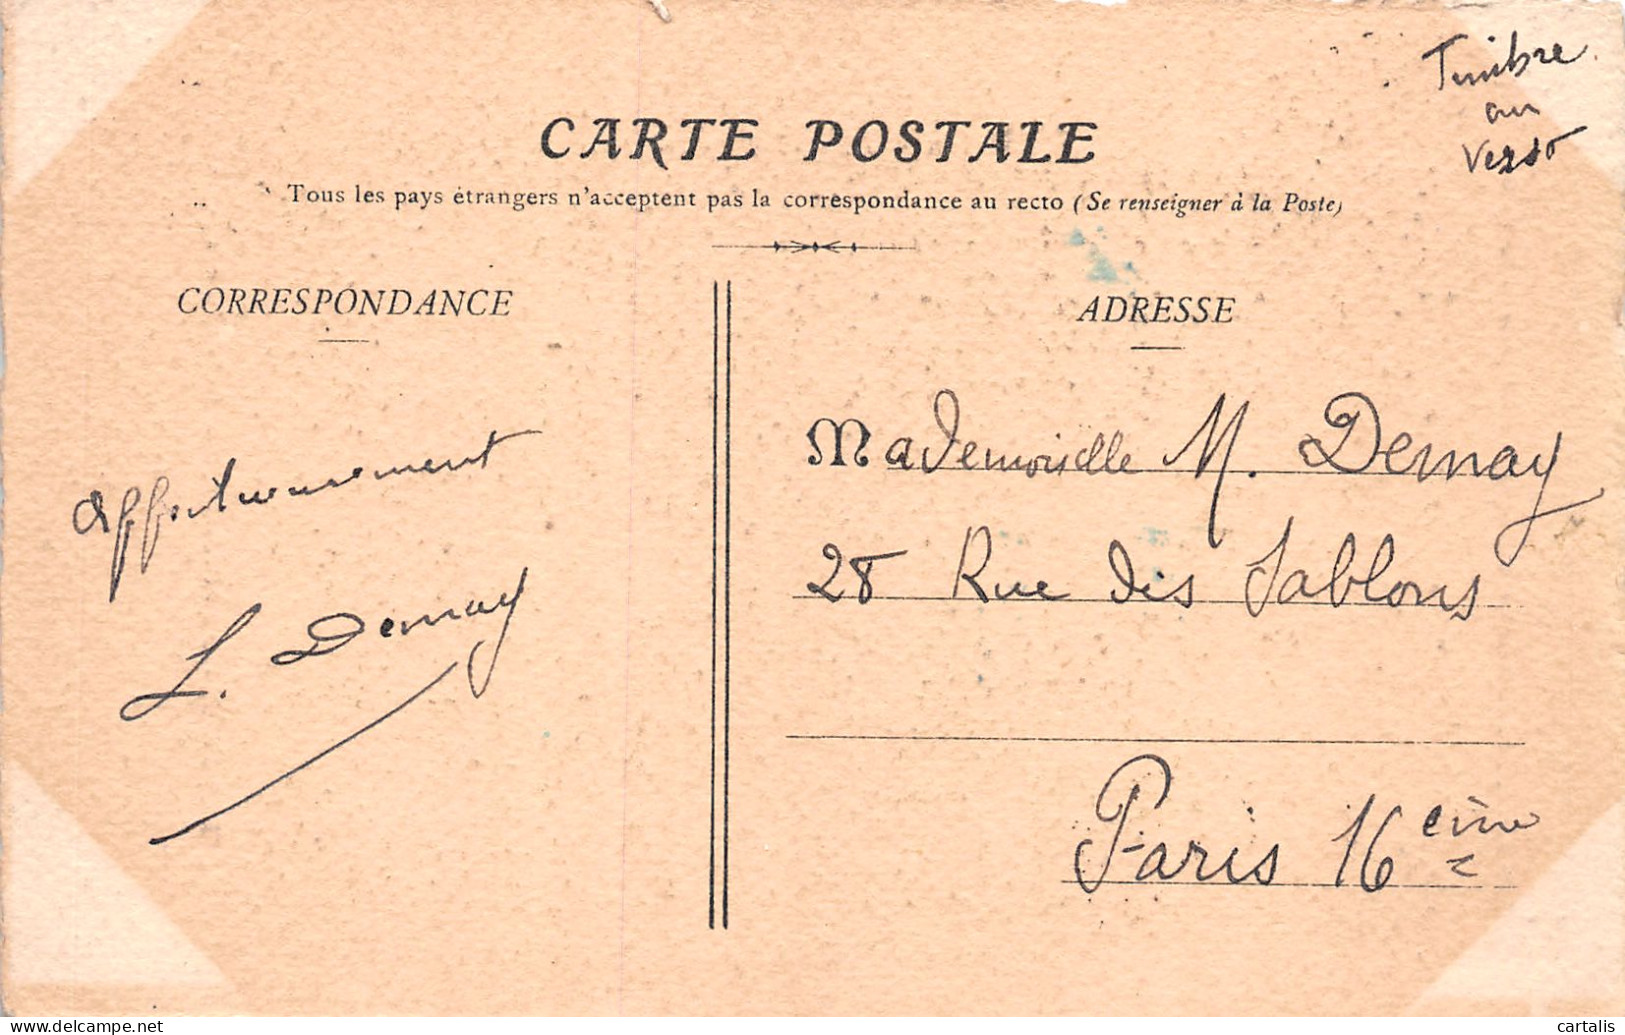 Timbre
au
Verso
CARTE POSTALE
Tous les pays étrangers n'acceptent pas la correspondance au recto (Se renseigner à la Poste)
CORRESPONDANCE
ADRESSE
affectueusement
L. Demay
Mademoiselle M. Demay
28 Rue des Sablons
Paris 16ème
Delcampe.net
cartalis